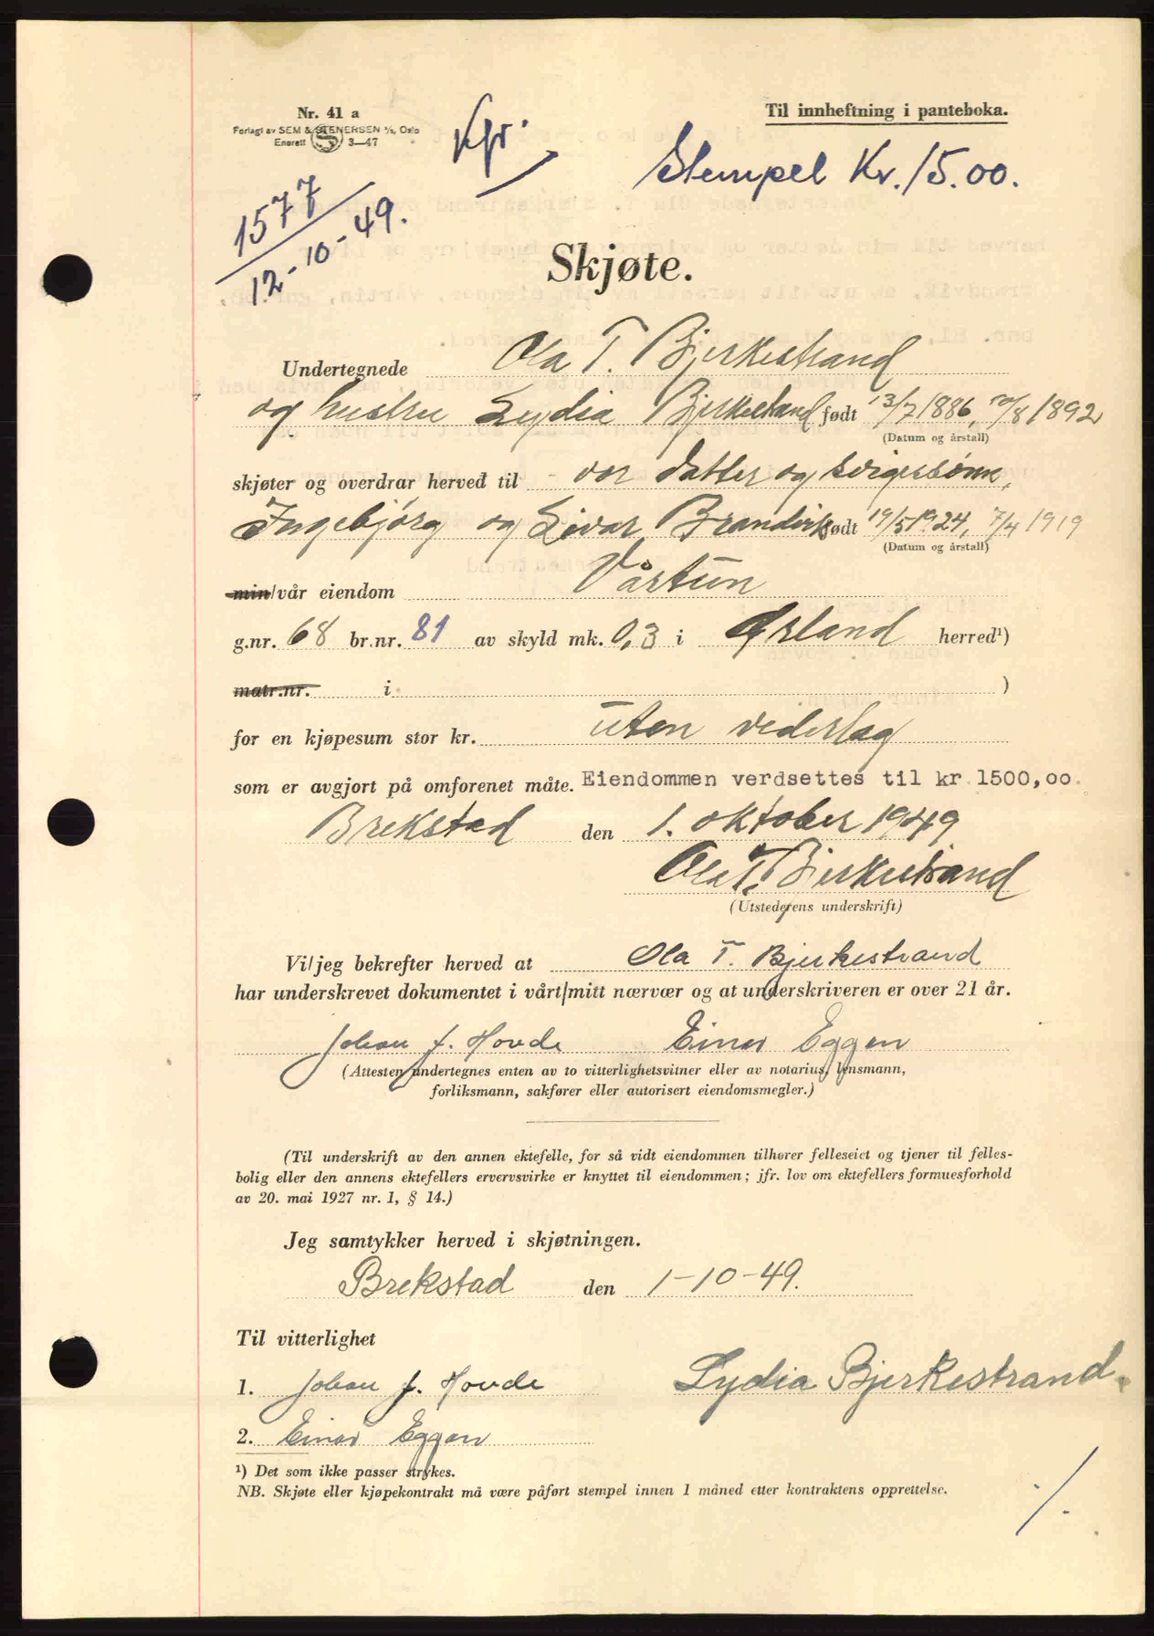 Nr. 41 a
Forlagt av SEM & STENERSEN A/S, Oslo
Enerett S 3—47
Kfr.
Til innheftning i panteboka.
Stempel Kr. 15.00.
1577
12-10-49.
Skjøte.
Undertegnede Ola T. Bjerkestrand
og hustru Lydia Bjerkestrand født 13/7 1886, 10/8 1892
(Datum og årstall)
skjøter og overdrar herved til - vor datter og svigersønn,
Ingebjørg og Livar Brandvik født 19/5 1924, 7/4 1919
(Datum og årstall)
min/vår eiendom Vårtun
g.nr. 68 br.nr. 81 av skyld mk. 0,3 i Ørland herred¹)
matr.nr. i )
for en kjøpesum stor kr. uten vederlag
som er avgjort på omforenet måte. Eiendommen verdsettes til kr 1500,00.
Brekstad den 1. oktober 1949
Ola T. Bjerkestrand
(Utstederens underskrift)
Vi/jeg bekrefter herved at Ola T. Bjerkestrand
har underskrevet dokumentet i vårt/mitt nærvær og at underskriveren er over 21 år.
Johan J. Hovde Einar Eggen
(Attesten undertegnes enten av to vitterlighetsvitner eller av notarius, lensmann,
forliksmann, sakfører eller autorisert eiendomsmegler.)
(Til underskrift av den annen ektefelle, for så vidt eiendommen tilhører felleseiet og tjener til felles-
bolig eller den annens ektefellers ervervsvirke er knyttet til eiendommen; jfr. lov om ektefellers formuesforhold
av 20. mai 1927 nr. 1, § 14.)
Jeg samtykker herved i skjøtningen.
Brekstad den 1-10-49.
Til vitterlighet
1. Johan J. Hovde Lydia Bjerkestrand.
2. Einar Eggen
¹) Det som ikke passer strykes.
NB. Skjøte eller kjøpekontrakt må være påført stempel innen 1 måned etter kontraktens opprettelse.
./.